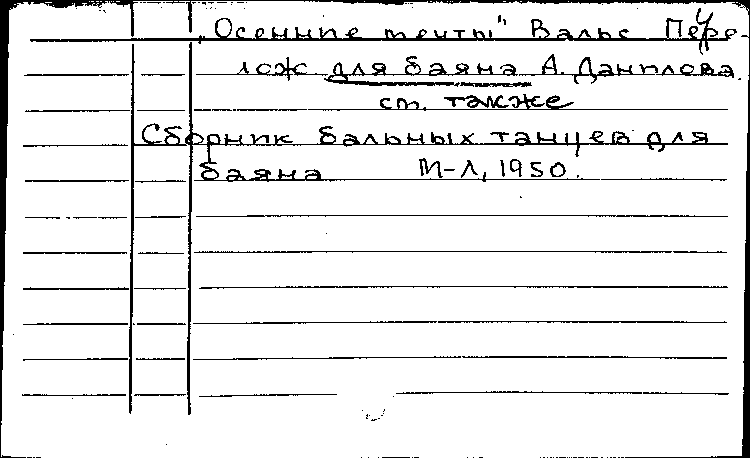 „Осенние мечты" Вальс Пере-
лож для баяна А. Данилова.
см. также
Сборник бальных танцев для
баяна М-Л, 1950.